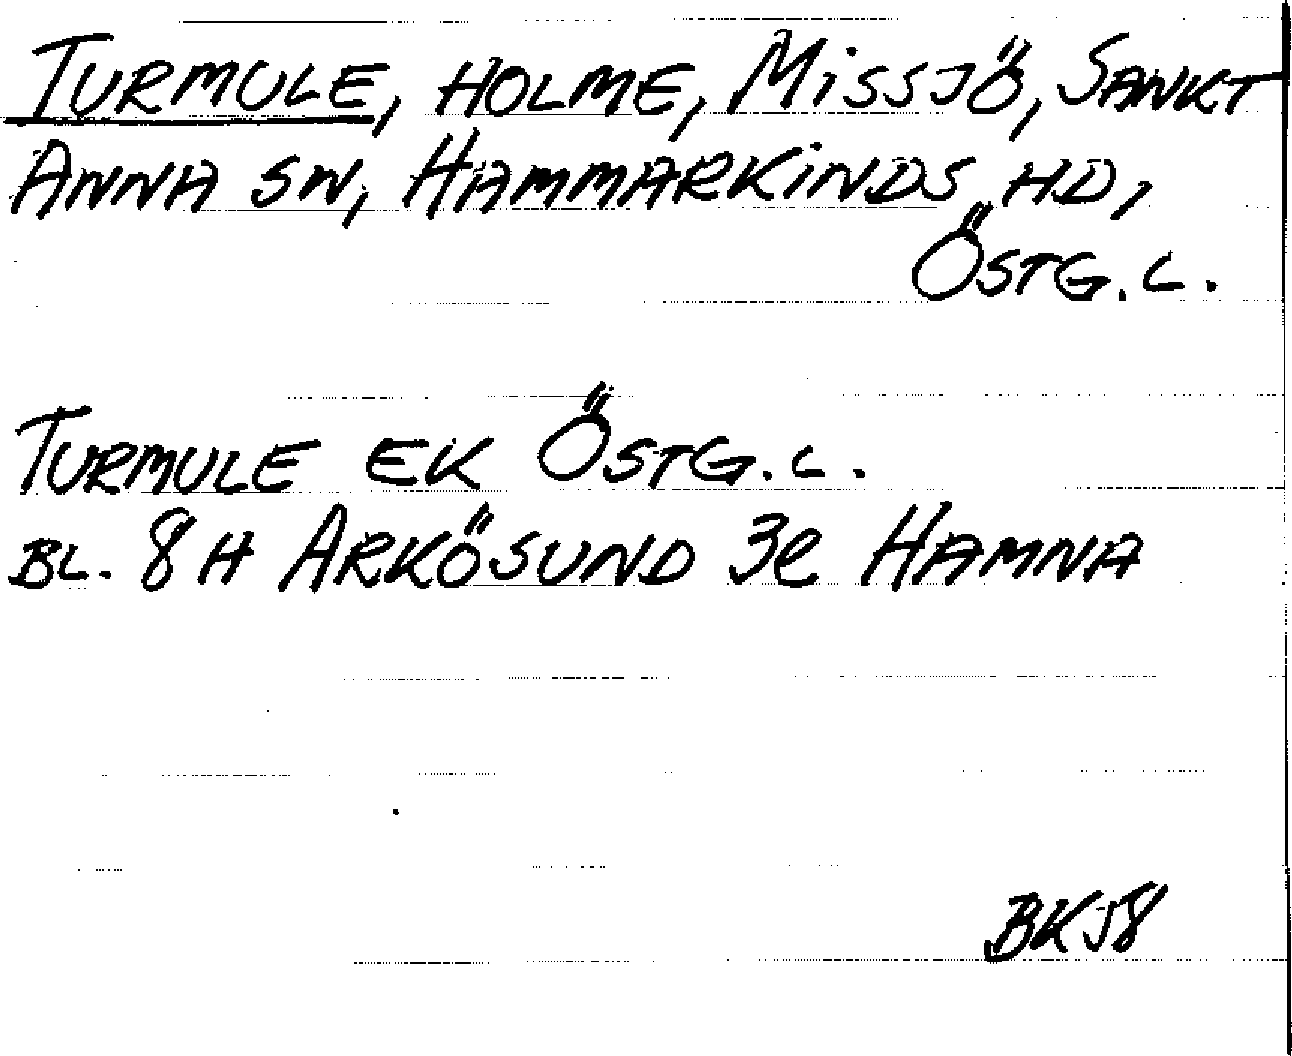 TURMULE, HOLME, MISSJÖ, SANKT
ANNA SN, HAMMARKINDS HD,
ÖSTG. L.
TURMULE EK ÖSTG. L.
BL. 8 H ARKÖSUND 3e HAMNA
BKJ8